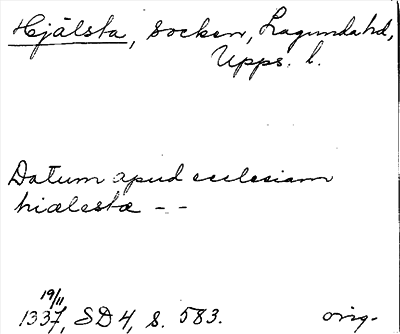 Hjälsta, socken, Lagunda hd,
Upps. l.
Datum apud ecclesiam
hiælestæ - -
19/11
1337, SD 4, s. 583. orig.